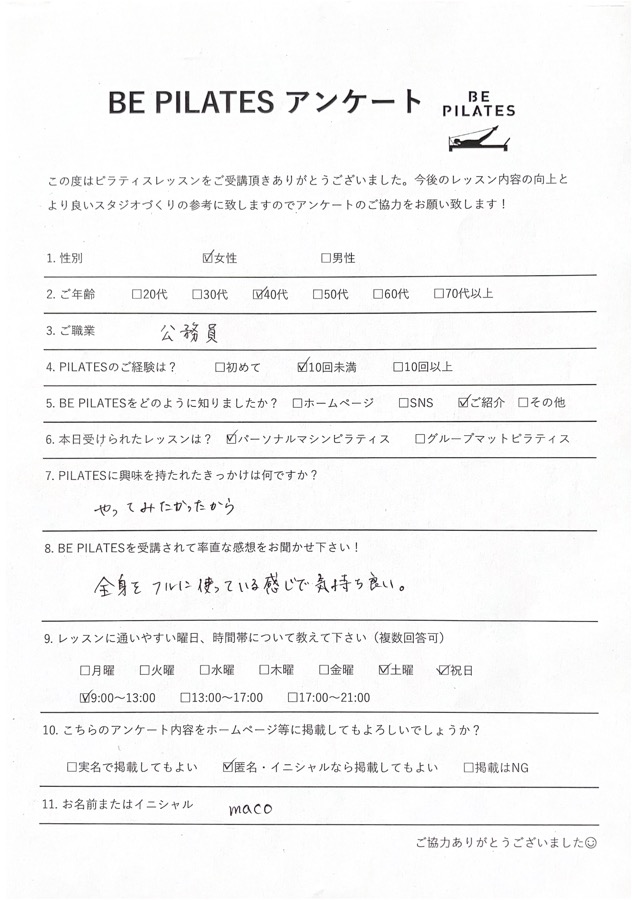 BE PILATES アンケート
BE
PILATES
この度はピラティスレッスンをご受講頂きありがとうございました。今後のレッスン内容の向上と
より良いスタジオづくりの参考に致しますのでアンケートのご協力をお願い致します！
1. 性別 ☑女性 □男性
2. ご年齢 □20代 □30代 ☑40代 □50代 □60代 □70代以上
3. ご職業 公務員
4. PILATESのご経験は？ □初めて ☑10回未満 □10回以上
5. BE PILATESをどのように知りましたか？ □ホームページ □SNS ☑ご紹介 □その他
6. 本日受けられたレッスンは？ ☑パーソナルマシンピラティス □グループマットピラティス
7. PILATESに興味を持たれたきっかけは何ですか？
やってみたかったから
8. BE PILATESを受講されて率直な感想をお聞かせ下さい！
全身をフルに使っている感じで気持ち良い。
9. レッスンに通いやすい曜日、時間帯について教えて下さい（複数回答可）
□月曜 □火曜 □水曜 □木曜 □金曜 ☑土曜 ☑祝日
☑9:00～13:00 □13:00～17:00 □17:00～21:00
10. こちらのアンケート内容をホームページ等に掲載してもよろしいでしょうか？
□実名で掲載してもよい ☑匿名・イニシャルなら掲載してもよい □掲載はNG
11. お名前またはイニシャル maco
ご協力ありがとうございました☺